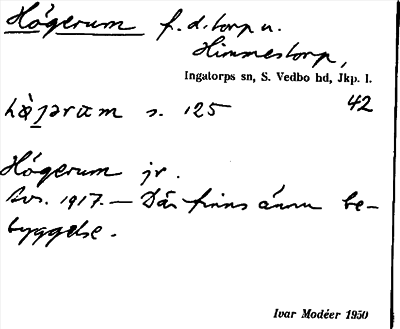 Högerum f.d. torp u.
Himmestorp,
Ingatorps sn, S. Vedbo hd, Jkp. l.
s. 125 42
Högerum jr.
Avs. 1917. — Där finns ännu be-
byggelse.
Ivar Modéer 1950